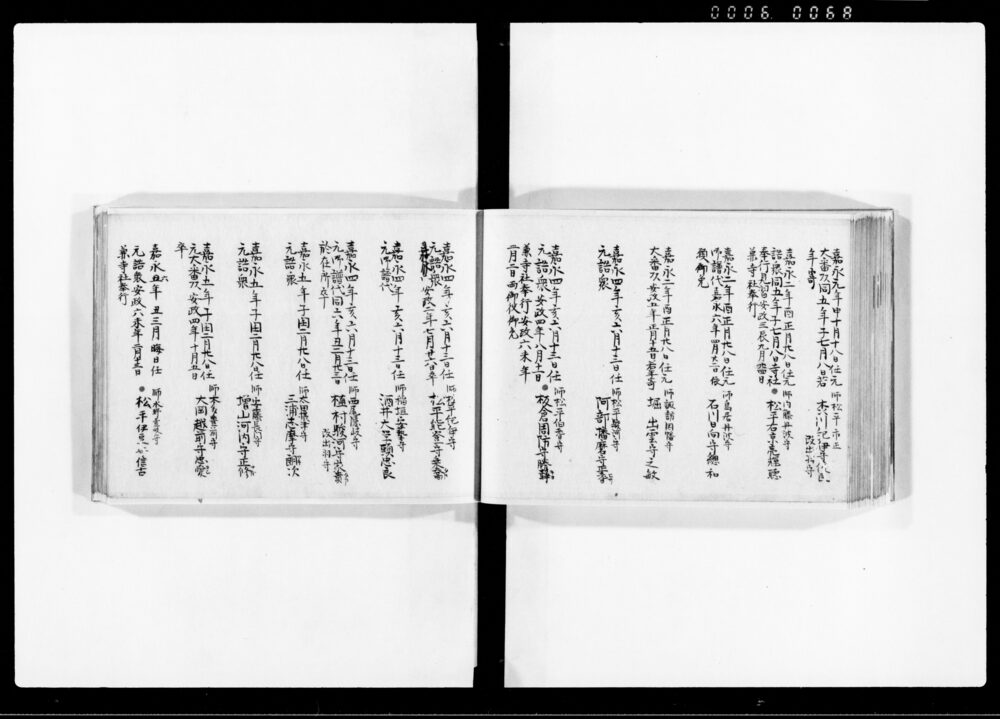 0006 0068
嘉永元年申十月十八日任元 師松平市正
大番頭同五年子七月八日若 本川紀伊守
年寄 改出羽守
嘉永二年酉正月廿八日任元 師内藤丹波守
詰衆同五年子七月八日寺社 松平右京亮輝聴
奉行見習安政三辰九月
兼寺社奉行
嘉永二年酉正月廿八日任元 師鳥居丹波守
御譜代嘉永六年四月 石川日向守総和
願御免
嘉永二年酉正月廿八日任元 師諏訪因幡守
大番頭安政五年正月十五日若年寄 堀 出雲守之敏
嘉永四年亥六月十三日任 師松平
元詰衆 阿部播磨守
嘉永四年亥六月十三日任 師松平伯耆守
元詰衆安政四年八月十一日 板倉周防守勝静
兼寺社奉行安政六未年
二月二日両御役御免
嘉永四年亥六月十三日任 師松平伯耆守
元詰衆 安政二年七月廿六日卒 松平能登守乗喬
嘉永四年亥六月十三日任 師稲垣安芸守
元御譜代 酒井大学頭忠良
嘉永四年亥六月十三日任 師西尾隠岐守
元御譜代同六年丑三月廿三日 植村駿河守
於在所卒 改出羽守
嘉永五年子閏二月廿八日任
元詰衆 三浦志摩守
嘉永五年子閏二月廿八日任 師安藤長門守
元詰衆 増山河内守正修
嘉永五年子閏二月廿八日任 師本多豊前守
元大番頭安政四年十月五日 大岡越前守忠愛
卒
嘉永六年丑三月晦日任 師水野壱岐守
元詰衆安政六未年二月十三日 松平伊豆守信古
兼寺社奉行